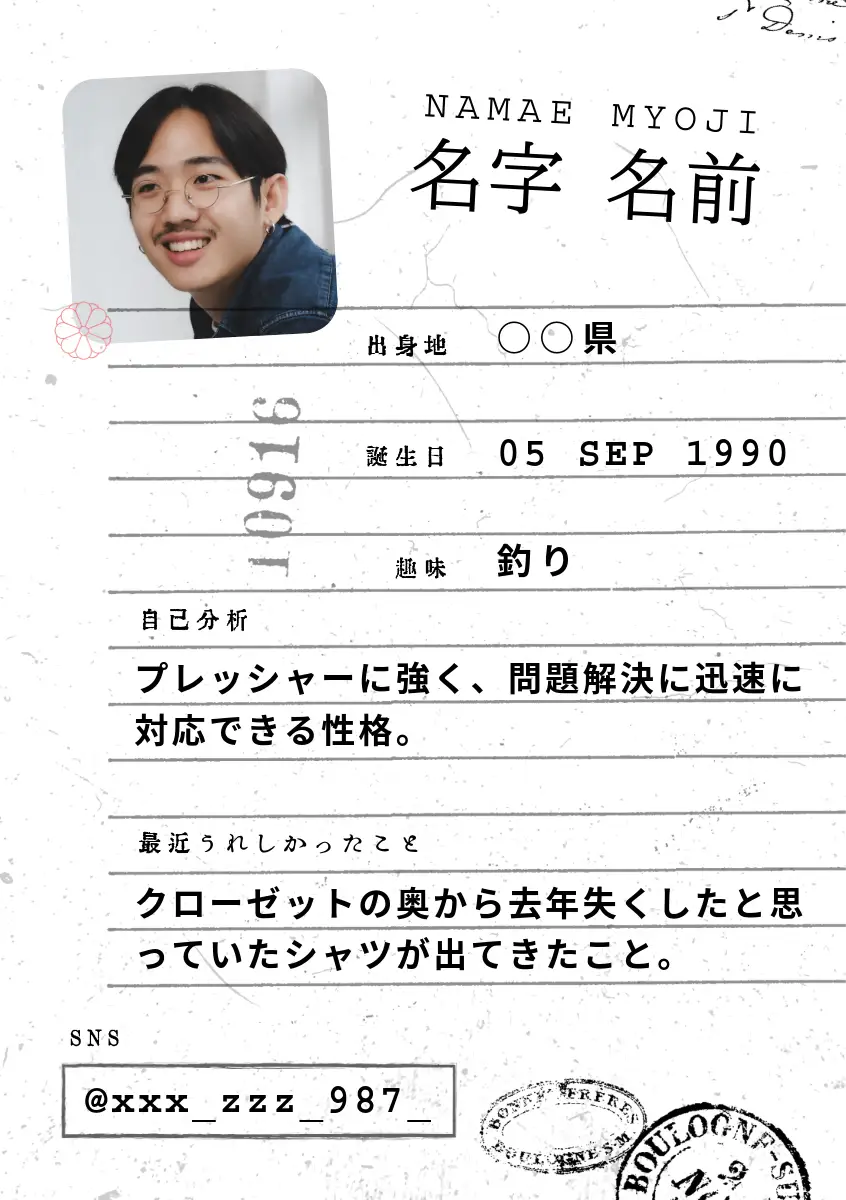 Denis
NAMAE MYOJI
名字 名前
出身地 〇〇県
10916
誕生日 05 SEP 1990
趣味 釣り
自己分析
プレッシャーに強く、問題解決に迅速に
対応できる性格。
最近うれしかったこと
クローゼットの奥から去年失くしたと思
っていたシャツが出てきたこと。
SNS
@xxx_zzz_987_
BONNE FRERES
BOULOGNE S M
BOULOGNE-S